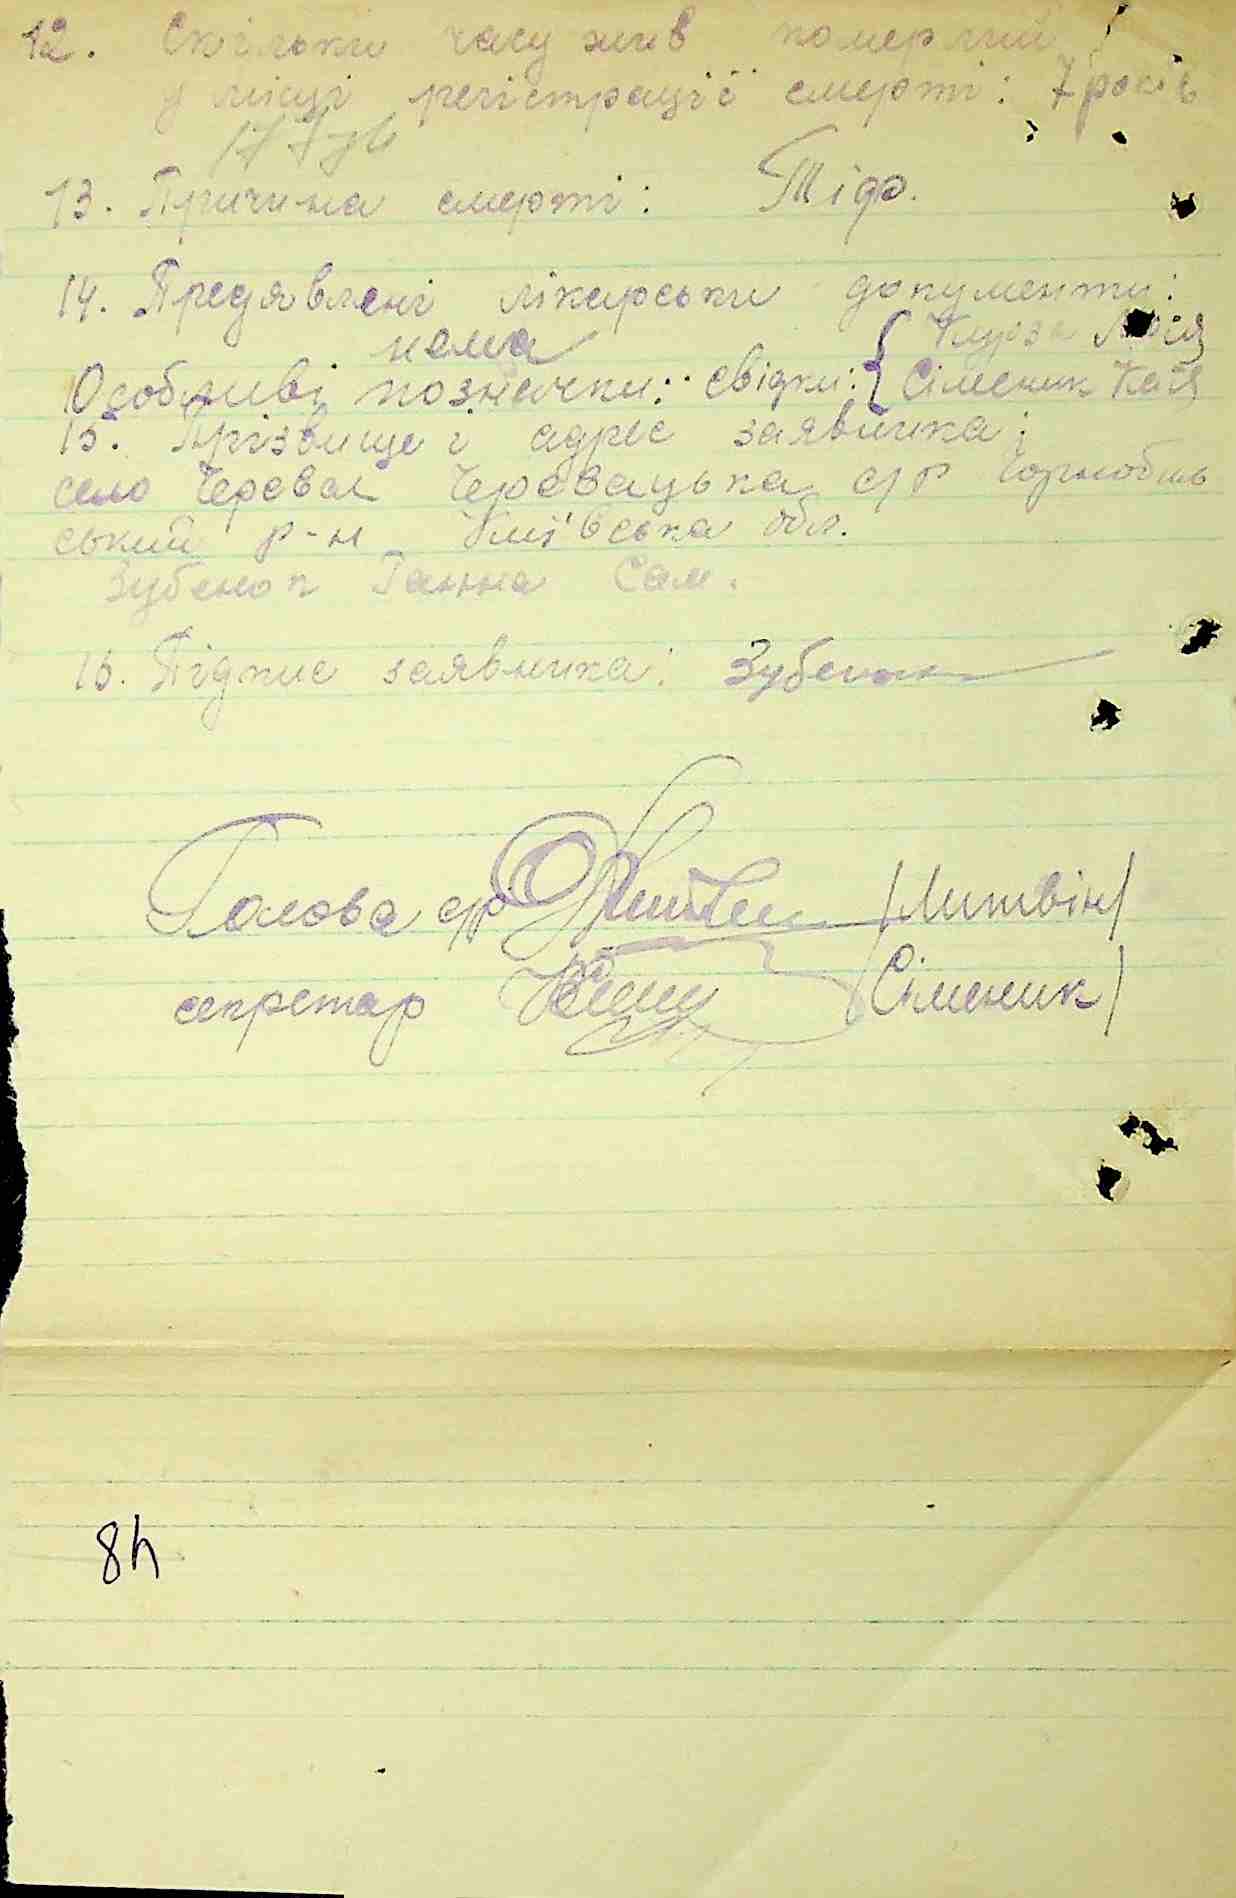 12. Скільки часу жив померлий
у місці регістрації смерті: 7 років
13. Причина смерті: Тіф.
14. Предявлені лікарськи документи:
нема
Особливі позначки: свідки: { Сіменик Катя
15. Прізвище і адрес заявника:
село Черевач Черевацька с/р Чорнобиль
ський р-н Київська обл.
Зубенок Ганна Сам.
16. Підпис заявника: Зубенок
Голова с/р Литвин /Литвін/
секретар /Сіменик/
84